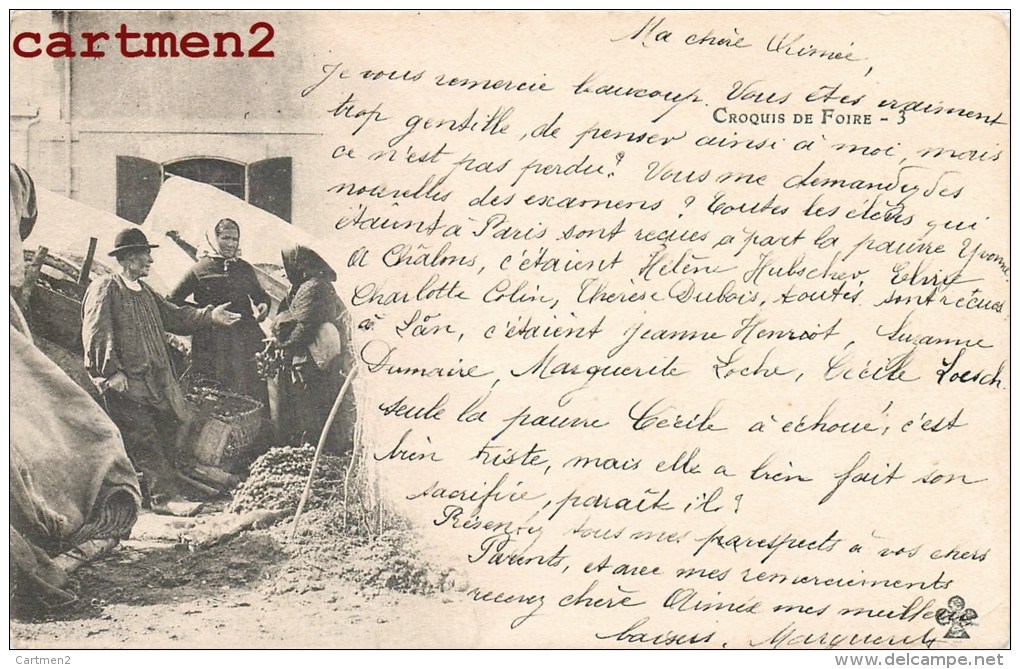 cartmen2
Ma chère Aimée,
Je vous remercie beaucoup. Vous êtes vraiment
CROQUIS DE FOIRE - 3
trop gentille, de penser ainsi à moi, mais
ce n'est pas perdu? Vous me demandez des
nouvelles des examens? Toutes les élèves qui
étaient à Paris sont reçues à part la pauvre Yvonne
A Châlons, c'étaient Hélène Hubscher,
Charlotte Colin, Thérèse Dubois, toutes sont reçues
à Lân, c'étaient Jeanne Henriot, Suzanne
Dumaire, Marguerite Loche, Cécile Loesch.
seule la pauvre Cécile à échoué, c'est
bien triste, mais elle a bien fait son
sacrifice, paraît il?
Présentez tous mes respects à vos chers
Parents, et avec mes remerciements
recevez chère Aimée mes meilleurs
baisers. Marguerite
Cartmen2